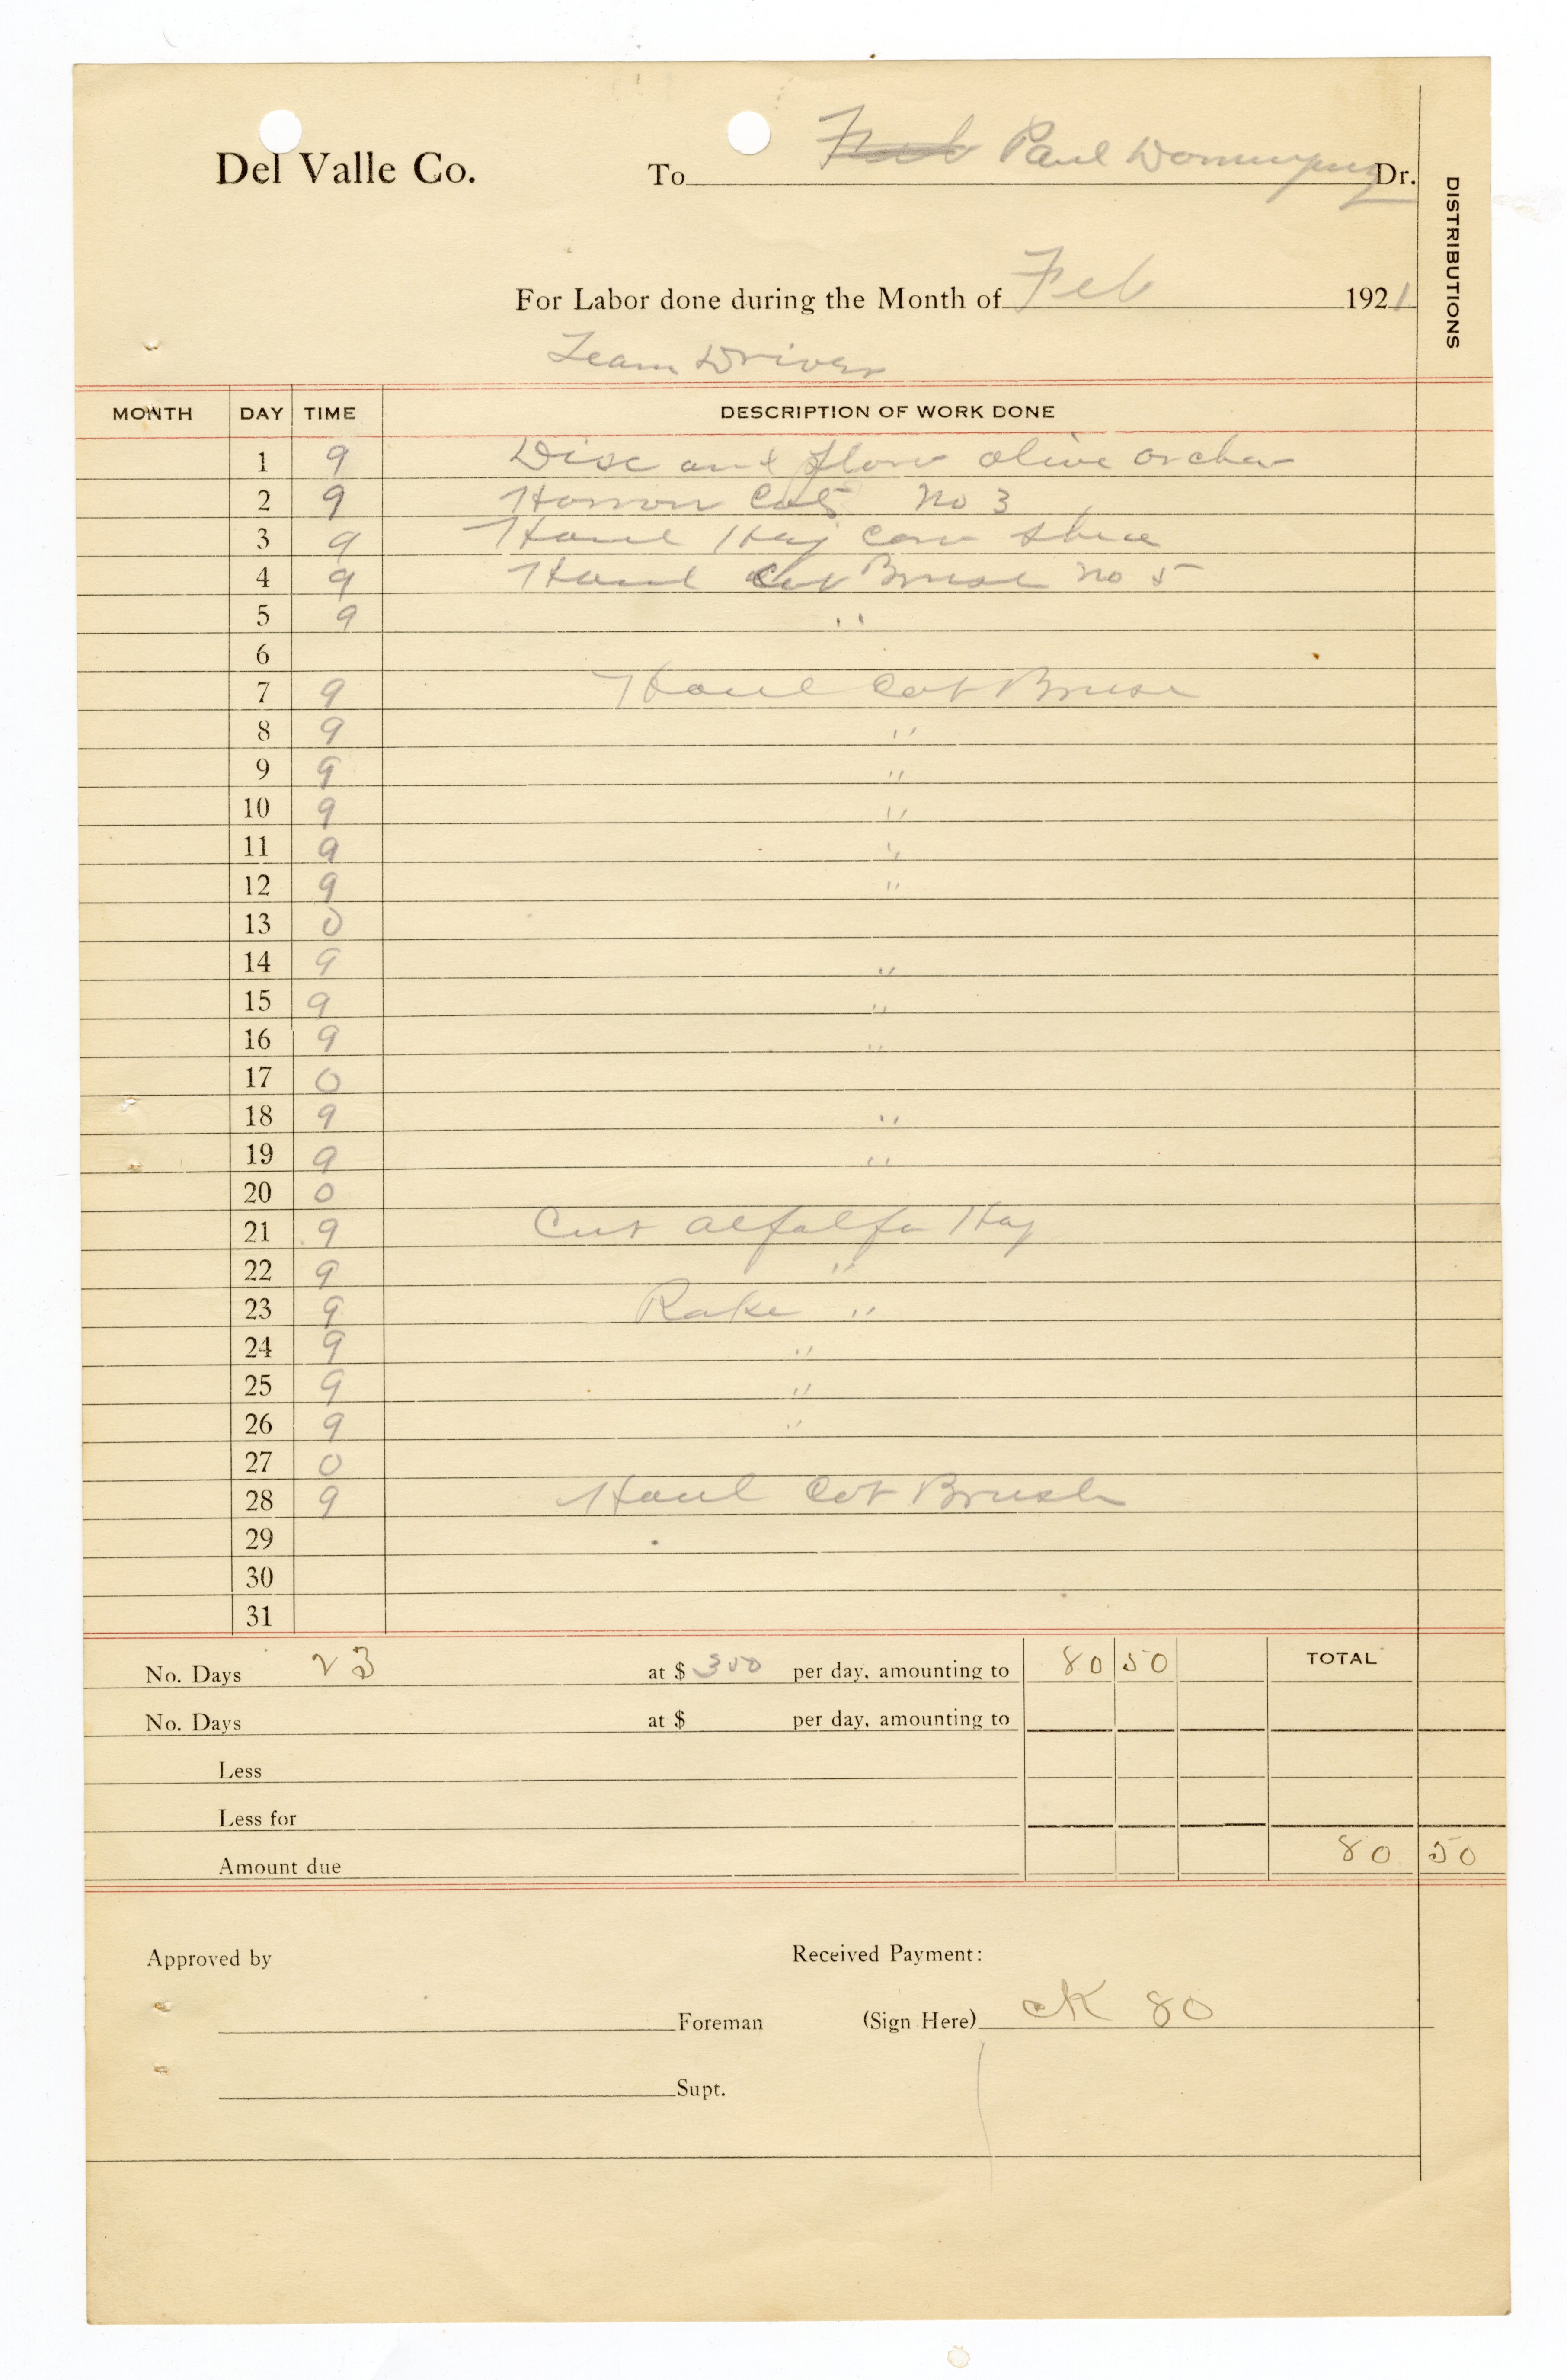 Del Valle Co. To Feb Paul Dominguez Dr.
DISTRIBUTIONS
For Labor done during the Month of Feb 1921
Team Driver
MONTH DAY TIME DESCRIPTION OF WORK DONE
1 9 Disc and Plow olive orchar
2 9 Harrow Cots No 3
3 9 Haul Hay Cow
4 9 Haul Cot Brush No 5
5 9 "
6
7 9 Haul Cot Brush
8 9 "
9 9 "
10 9 "
11 9 "
12 9 "
13 0
14 9 "
15 9 "
16 9 "
17 0
18 9 "
19 9 "
20 0
21 9 Cut alfalfa Hay
22 9 "
23 9 Rake "
24 9 "
25 9 "
26 9 "
27 0
28 9 Haul Cot Brush
29
30
31
No. Days 23 at $ 350 per day, amounting to 80 50 TOTAL
No. Days at $ per day, amounting to
Less
Less for
Amount due 80 50
Approved by Received Payment:
Foreman (Sign Here) CK 80
Supt.